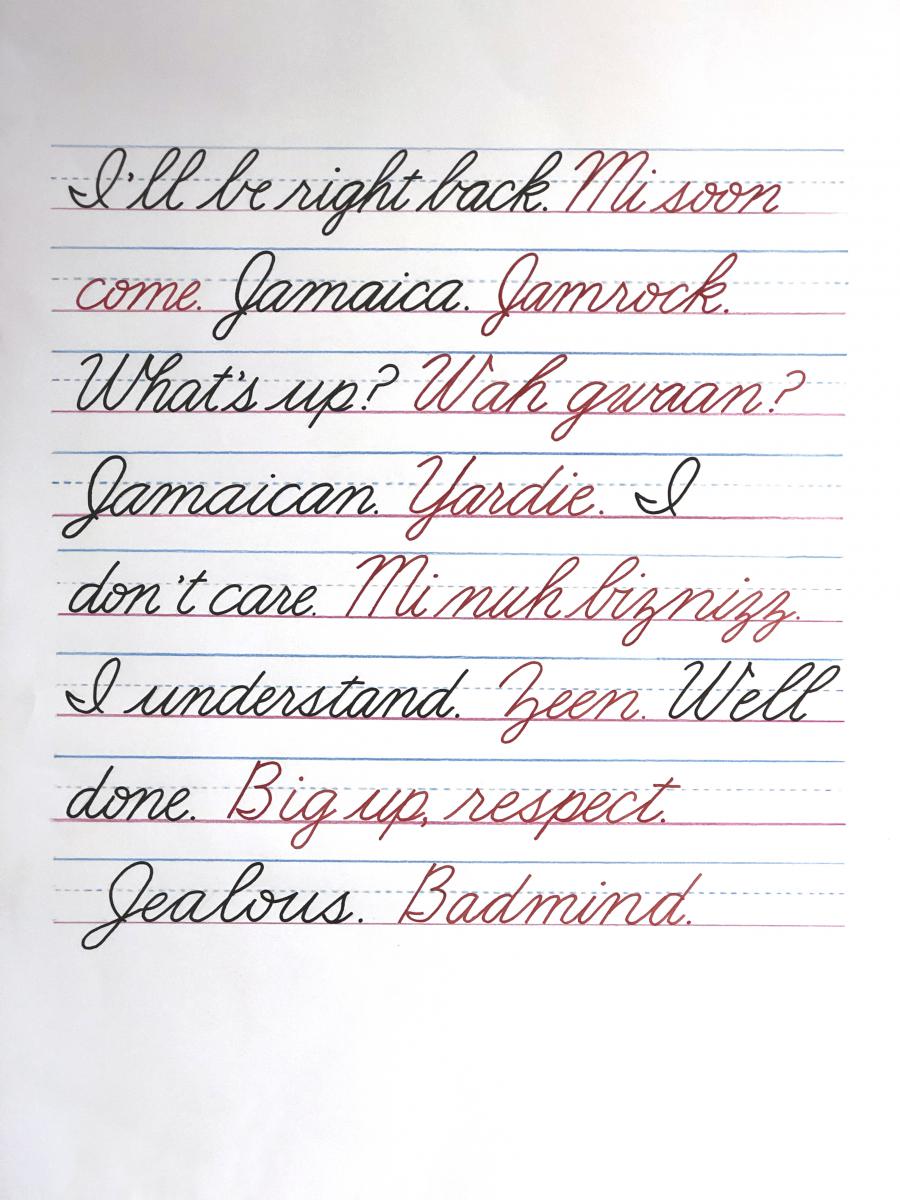 I'll be right back. Mi soon
come. Jamaica. Jamrock.
What's up? Wah gwaan?
Jamaican. Yardie. I
don't care. Mi nuh biznizz.
I understand. Zeen. Well
done. Big up, respect.
Jealous. Badmind.